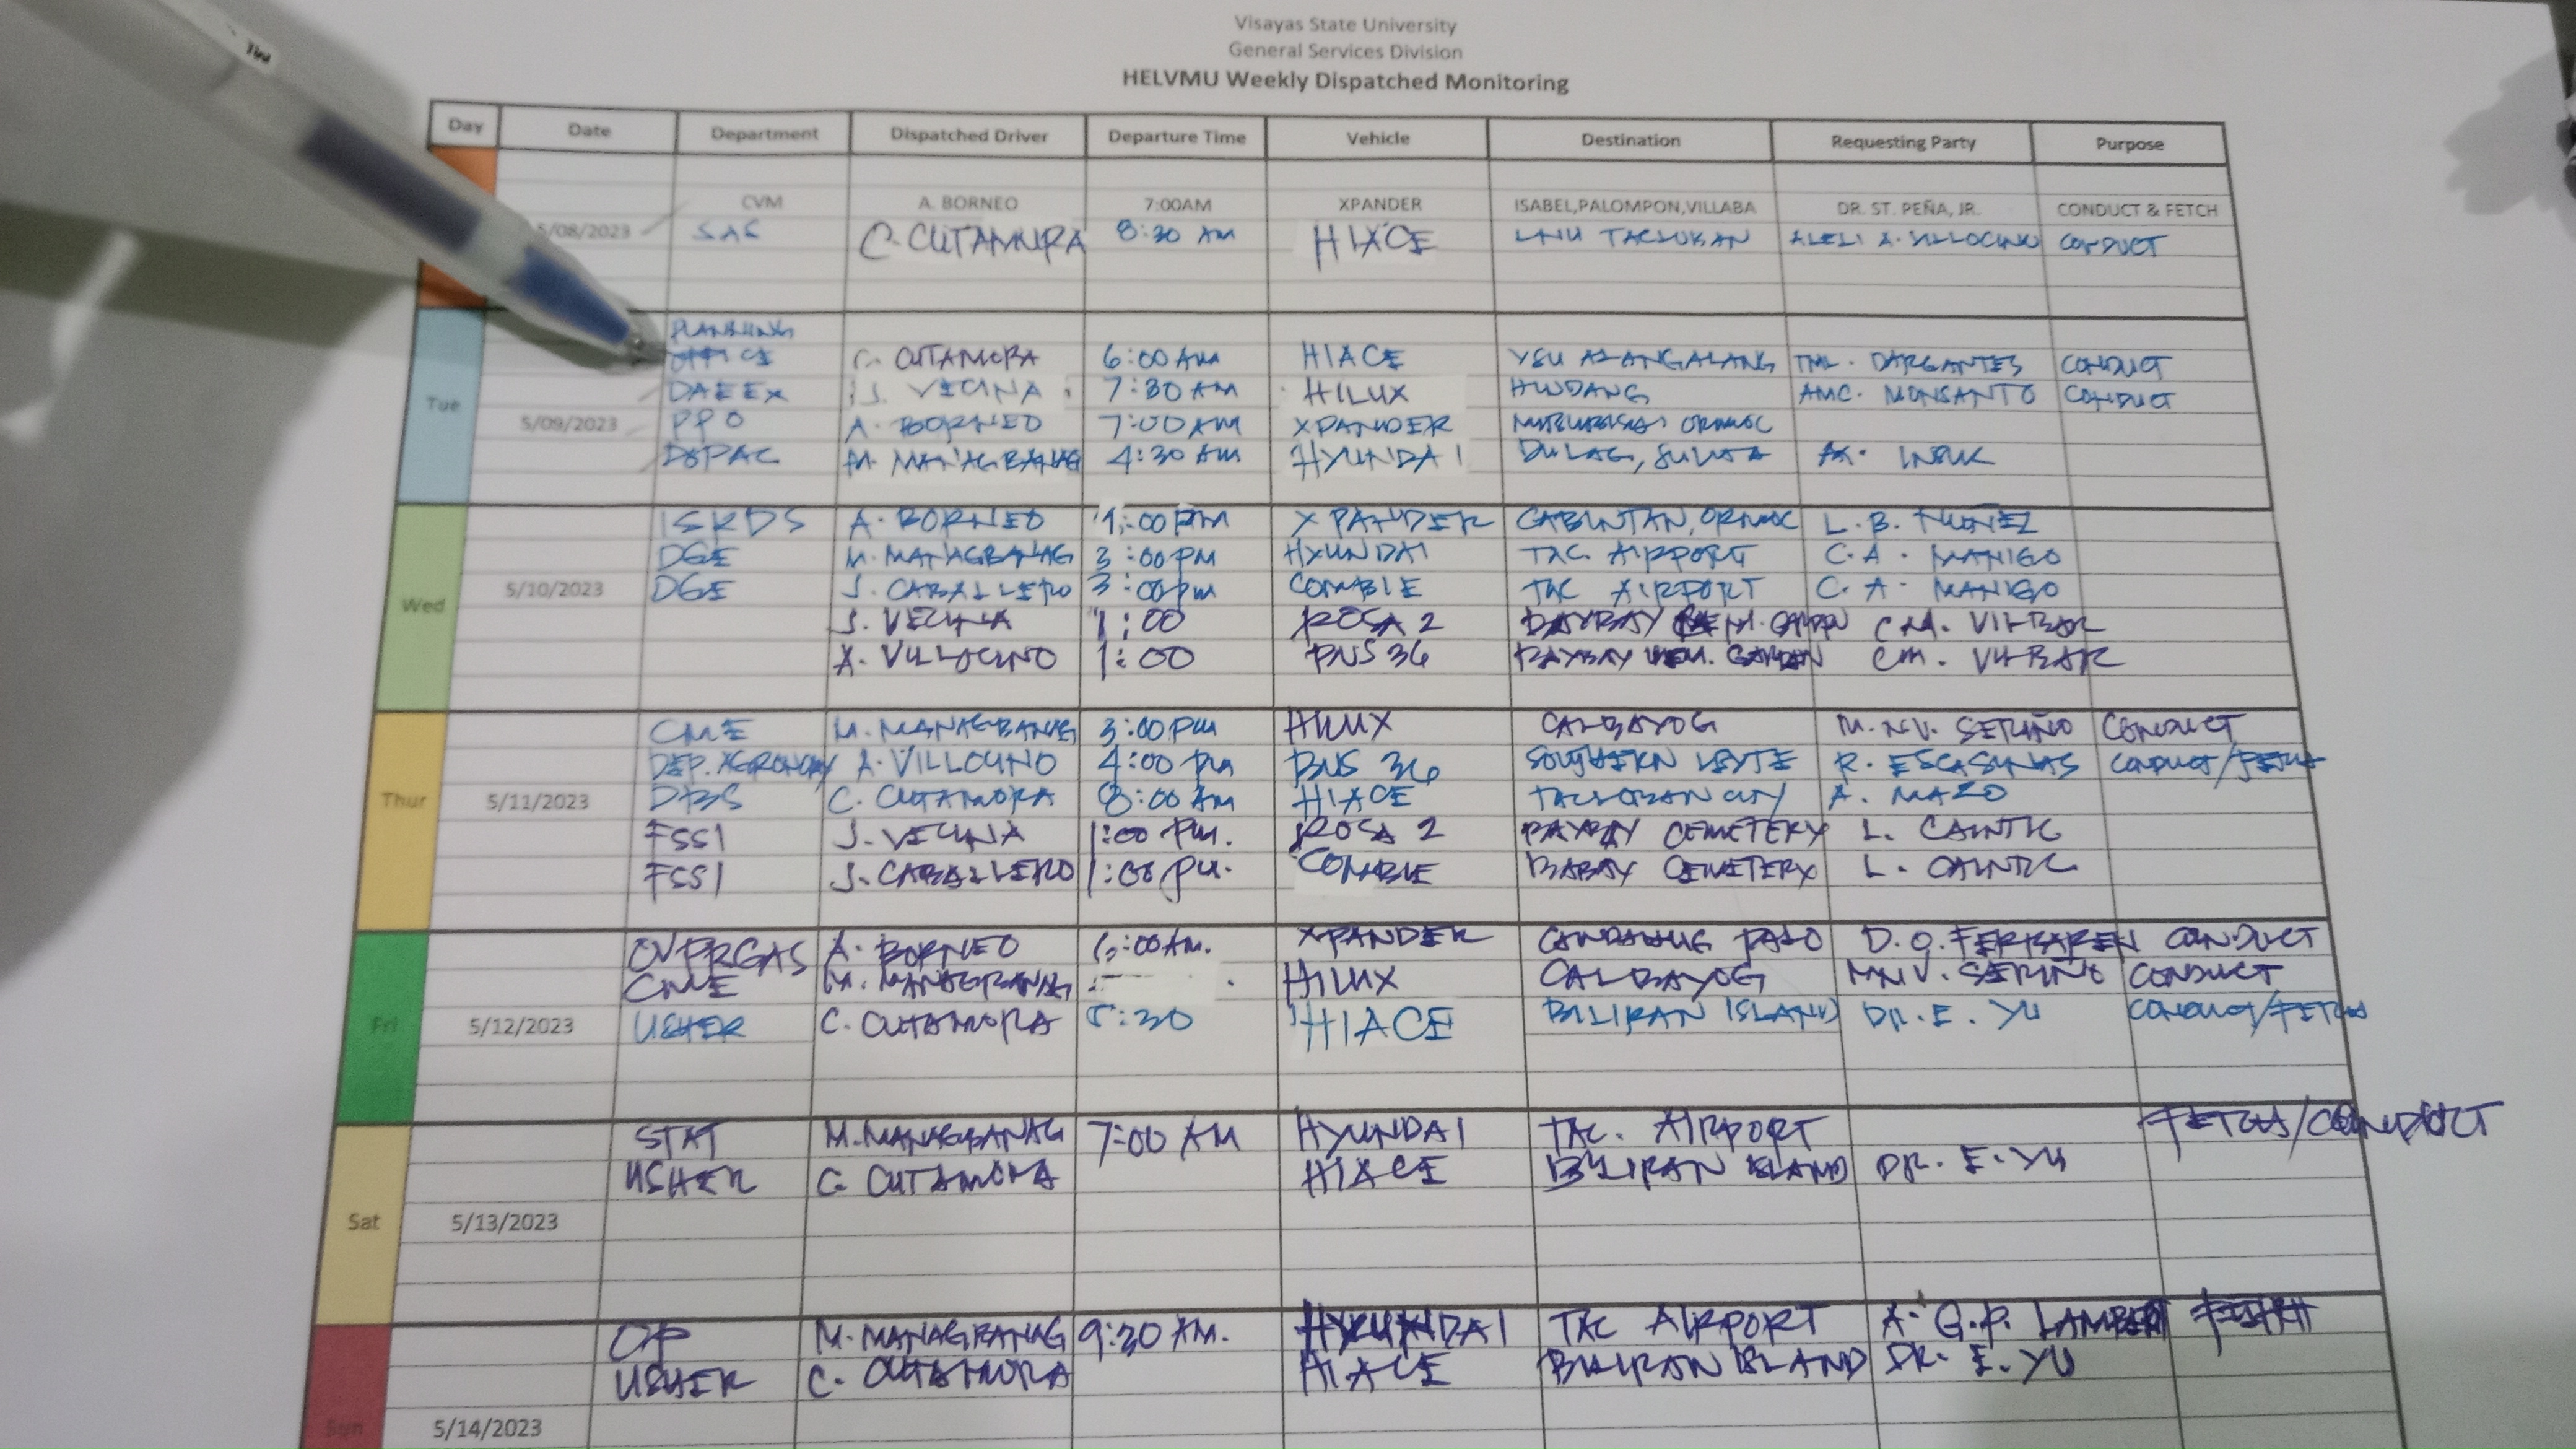 Visayas State University
General Services Division
HELVMU Weekly Dispatched Monitoring
Day Date Department Dispatched Driver Departure Time Vehicle Destination Requesting Party Purpose
CVM A. BORNEO 7:00AM XPANDER ISABEL,PALOMPON,VILLABA DR. ST. PEÑA, JR. CONDUCT & FETCH
5/08/2023 SAS C. CUTAMORA 8:30 AM HIACE LNU TACLOBAN ALELI A. VILLOCINO CONDUCT
PLANNING
OFFICE C. CUTAMORA 6:00 AM HIACE VSU ALANGALANG DARGANTES CONDUCT
Tue DAEEx J. VECINA 7:30 AM HILUX HINDANG AMC. MONSANTO CONDUCT
5/09/2023 PPO A. BORNEO 7:00 AM XPANDER ORMOC
DOPAC M. MANAGBANAG 4:30 AM HYUNDAI DULAG,
ISRDS A. BORNEO 1:00 PM XPANDER CABINTAN, ORMOC L. B. NUÑEZ
DGE M. MANAGBANAG 3:00 PM HYUNDAI TAC. AIRPORT C. A. MANIGO
Wed 5/10/2023 DGE J. CABALLERO 3:00 pm TAC AIRPORT C. A. MANIGO
J. VECINA 1:00 ROSA 2 BAYBAY MEM. GARDEN CM. VILBAR
A. VILLOCINO 1:00 BUS 36 BAYBAY MEM. GARDEN CM. VILBAR
CME M. MANAGBANAG 3:00 PM HILUX CALBAYOG M. NV. SERIÑO CONDUCT
DEP. AGRONOMY A. VILLOCINO 4:00 PM BUS 36 SOUTHERN LEYTE R. ESCASINAS CONDUCT/FETCH
Thur 5/11/2023 DBS C. CUTAMORA 8:00 AM HIACE TACLOBAN CITY A. MAZO
FSSI J. VECINA 1:00 PM. ROSA 2 BAYBAY CEMETERY L. CAINTIC
FSSI J. CABALLERO 1:00 PM. BABAY CEMETERY L. CAINTIC
OVPRGAS A. BORNEO 6:00 AM. XPANDER CANDAHUG PALO CONDUCT
CME M. MANAGBANAG HILUX CALBAYOG MNV. SERIÑO CONDUCT
Fri 5/12/2023 USHER C. CUTAMORA 5:30 HIACE BILIRAN ISLAND DR. E. YU CONDUCT/FETCH
STAT M. MANAGBANAG 7:00 AM HYUNDAI TAC. AIRPORT FETCH/CONDUCT
USHER C. CUTAMORA HIACE BILIRAN ISLAND DR. E. YU
Sat 5/13/2023
OP M. MANAGBANAG 9:30 AM. HYUNDAI TAC AIRPORT A. G.P. FETCH
USHER C. CUTAMORA HIACE BILIRAN ISLAND DR. E. YU
Sun 5/14/2023